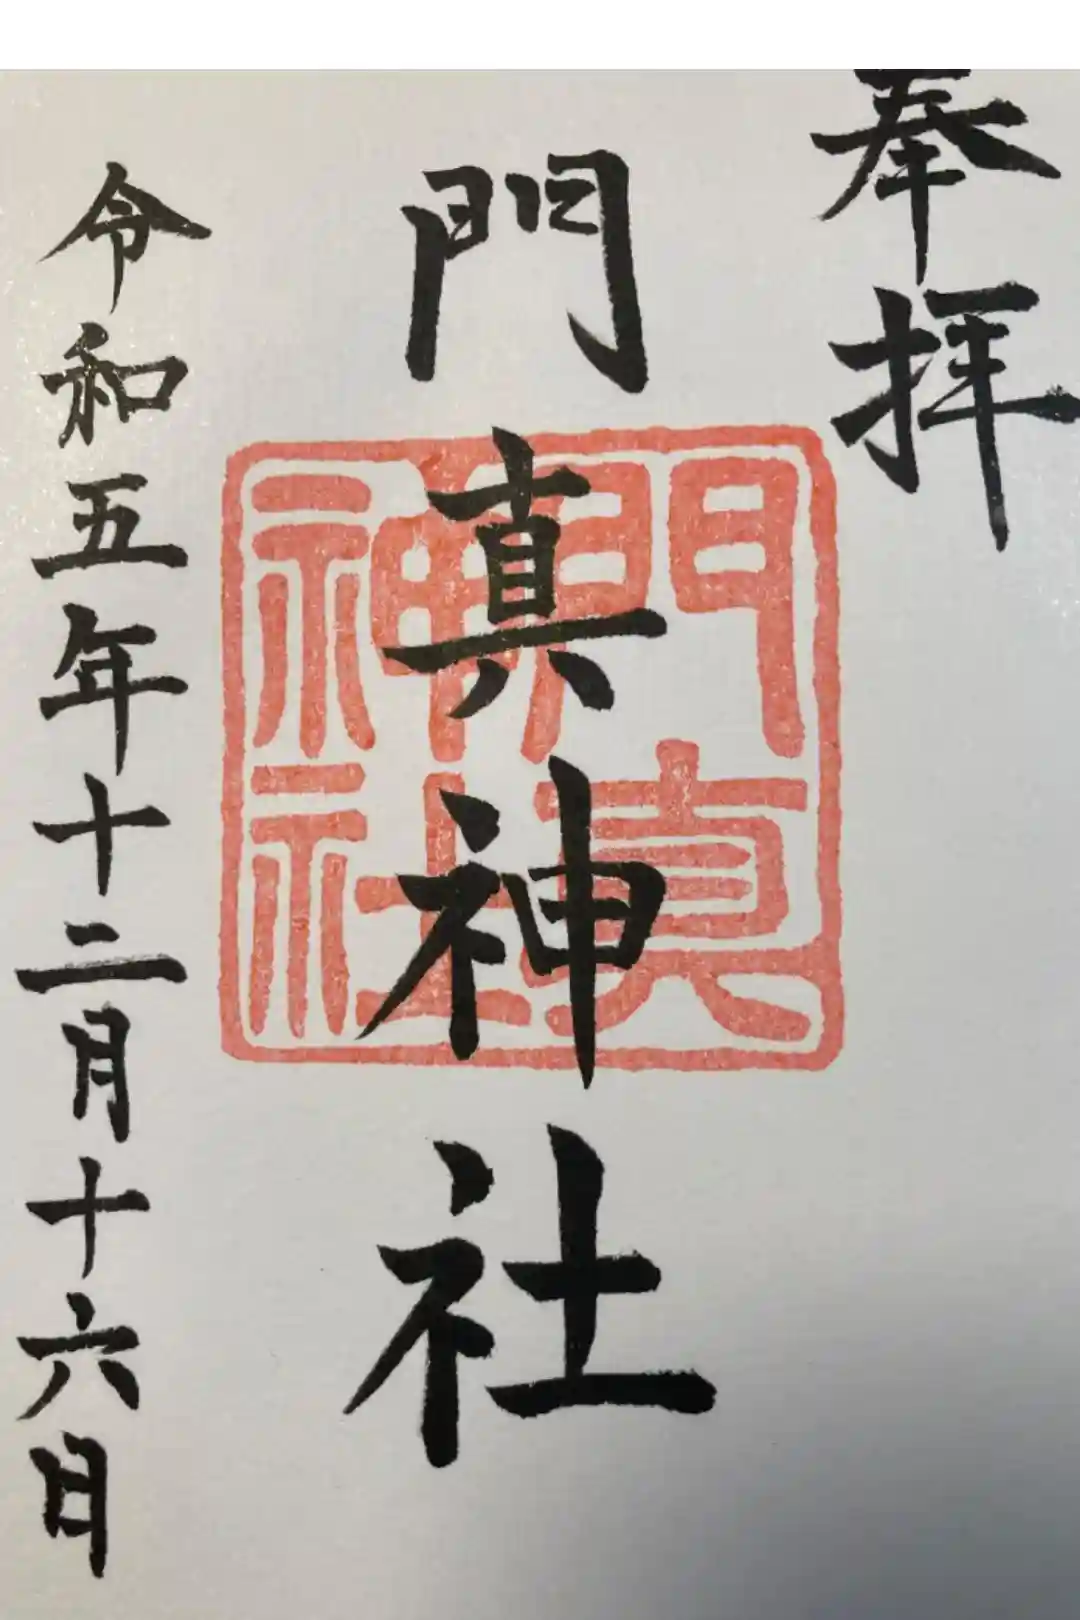 奉拝
門真神社
門真神社
令和五年十二月十六日